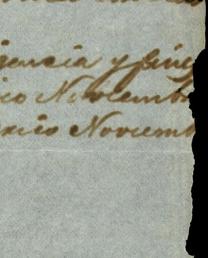 gencia y fines
ico Noviembr
exico Noviemb